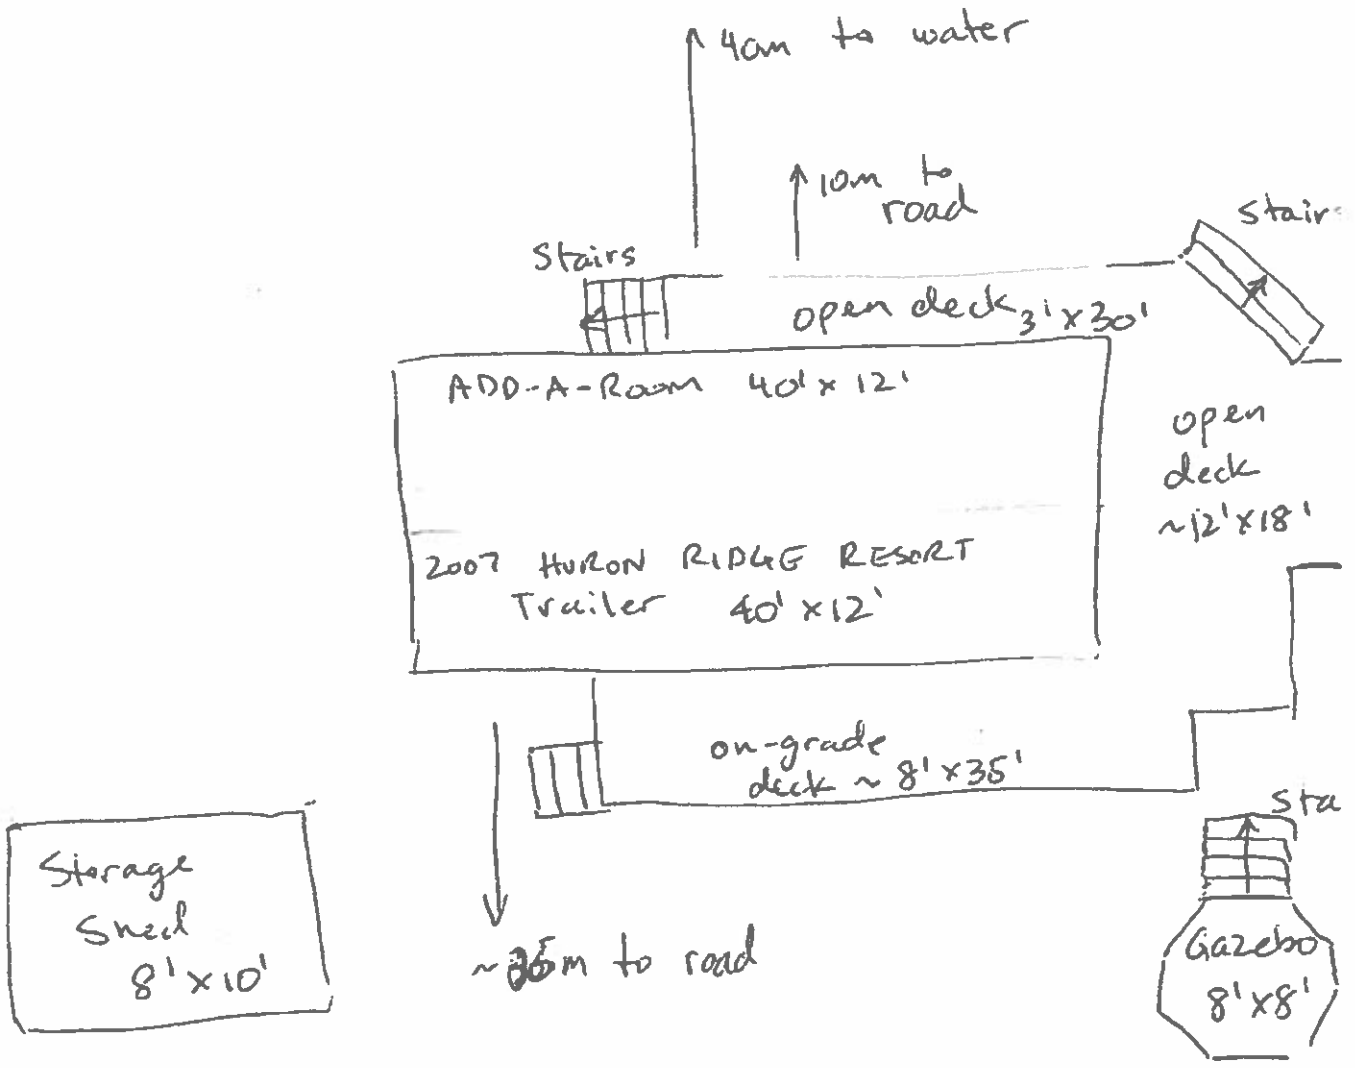 40m to water
10m to
road
Stairs
Stair
open deck 3'x30'
ADD-A-ROOM 40'x12'
open
deck
~12'x18'
2007 HURON RIDGE RESORT
Trailer 40'x12'
on-grade
deck ~ 8'x35'
Sta
Storage
Shed
8'x10'
m to road
Gazebo
8'x8'